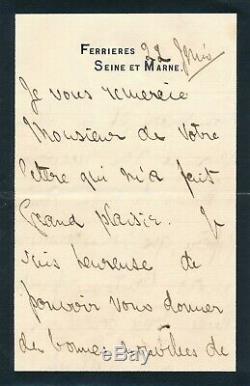 FERRIERES 22 Juin
SEINE ET MARNE.
Je vous remercie
Monsieur de votre
lettre qui m'a fait
Grand plaisir. Je
suis heureuse de
pouvoir vous donner
de bonnes nouvelles de